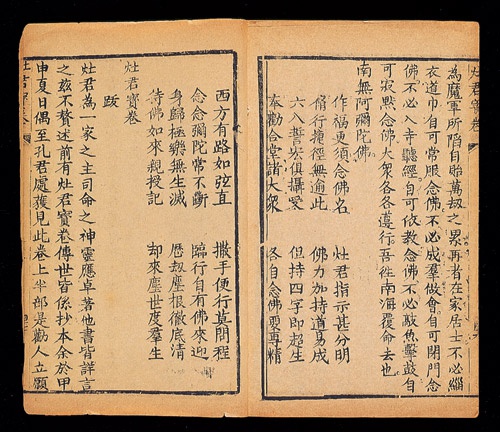 灶君寶卷
為魔軍所陷自貽萬刼之累再者在家居士不必緇
衣道巾自可常服念佛不必成羣做會自可閉門念
佛不必入寺聽經自可依教念佛不必敲魚擊鼓自
可寂默念佛大衆各各遵行吾往南海覆命去也
南無阿彌陀佛
作福更須念佛名 灶君指示甚分明
脩行捷徑無逾此 佛力加持道易成
六入誓宏俱攝受 但持四字即超生
奉勸合堂諸大衆 各自念佛要再精
西方有路如弦直 撒手便行莫問程
念念彌陀常不斷 臨行自有佛來迎
身歸極樂無生滅 歷刼塵根徹底清
待佛如來親授記 却來塵世度羣生
灶君寶卷
跋
灶君為一家之主司命之神靈應卓著他書皆詳言
之茲不贅述前有灶君寶卷傳世皆係抄本余於甲
申夏日偶至孔君處獲見此卷上半部是勸人立願